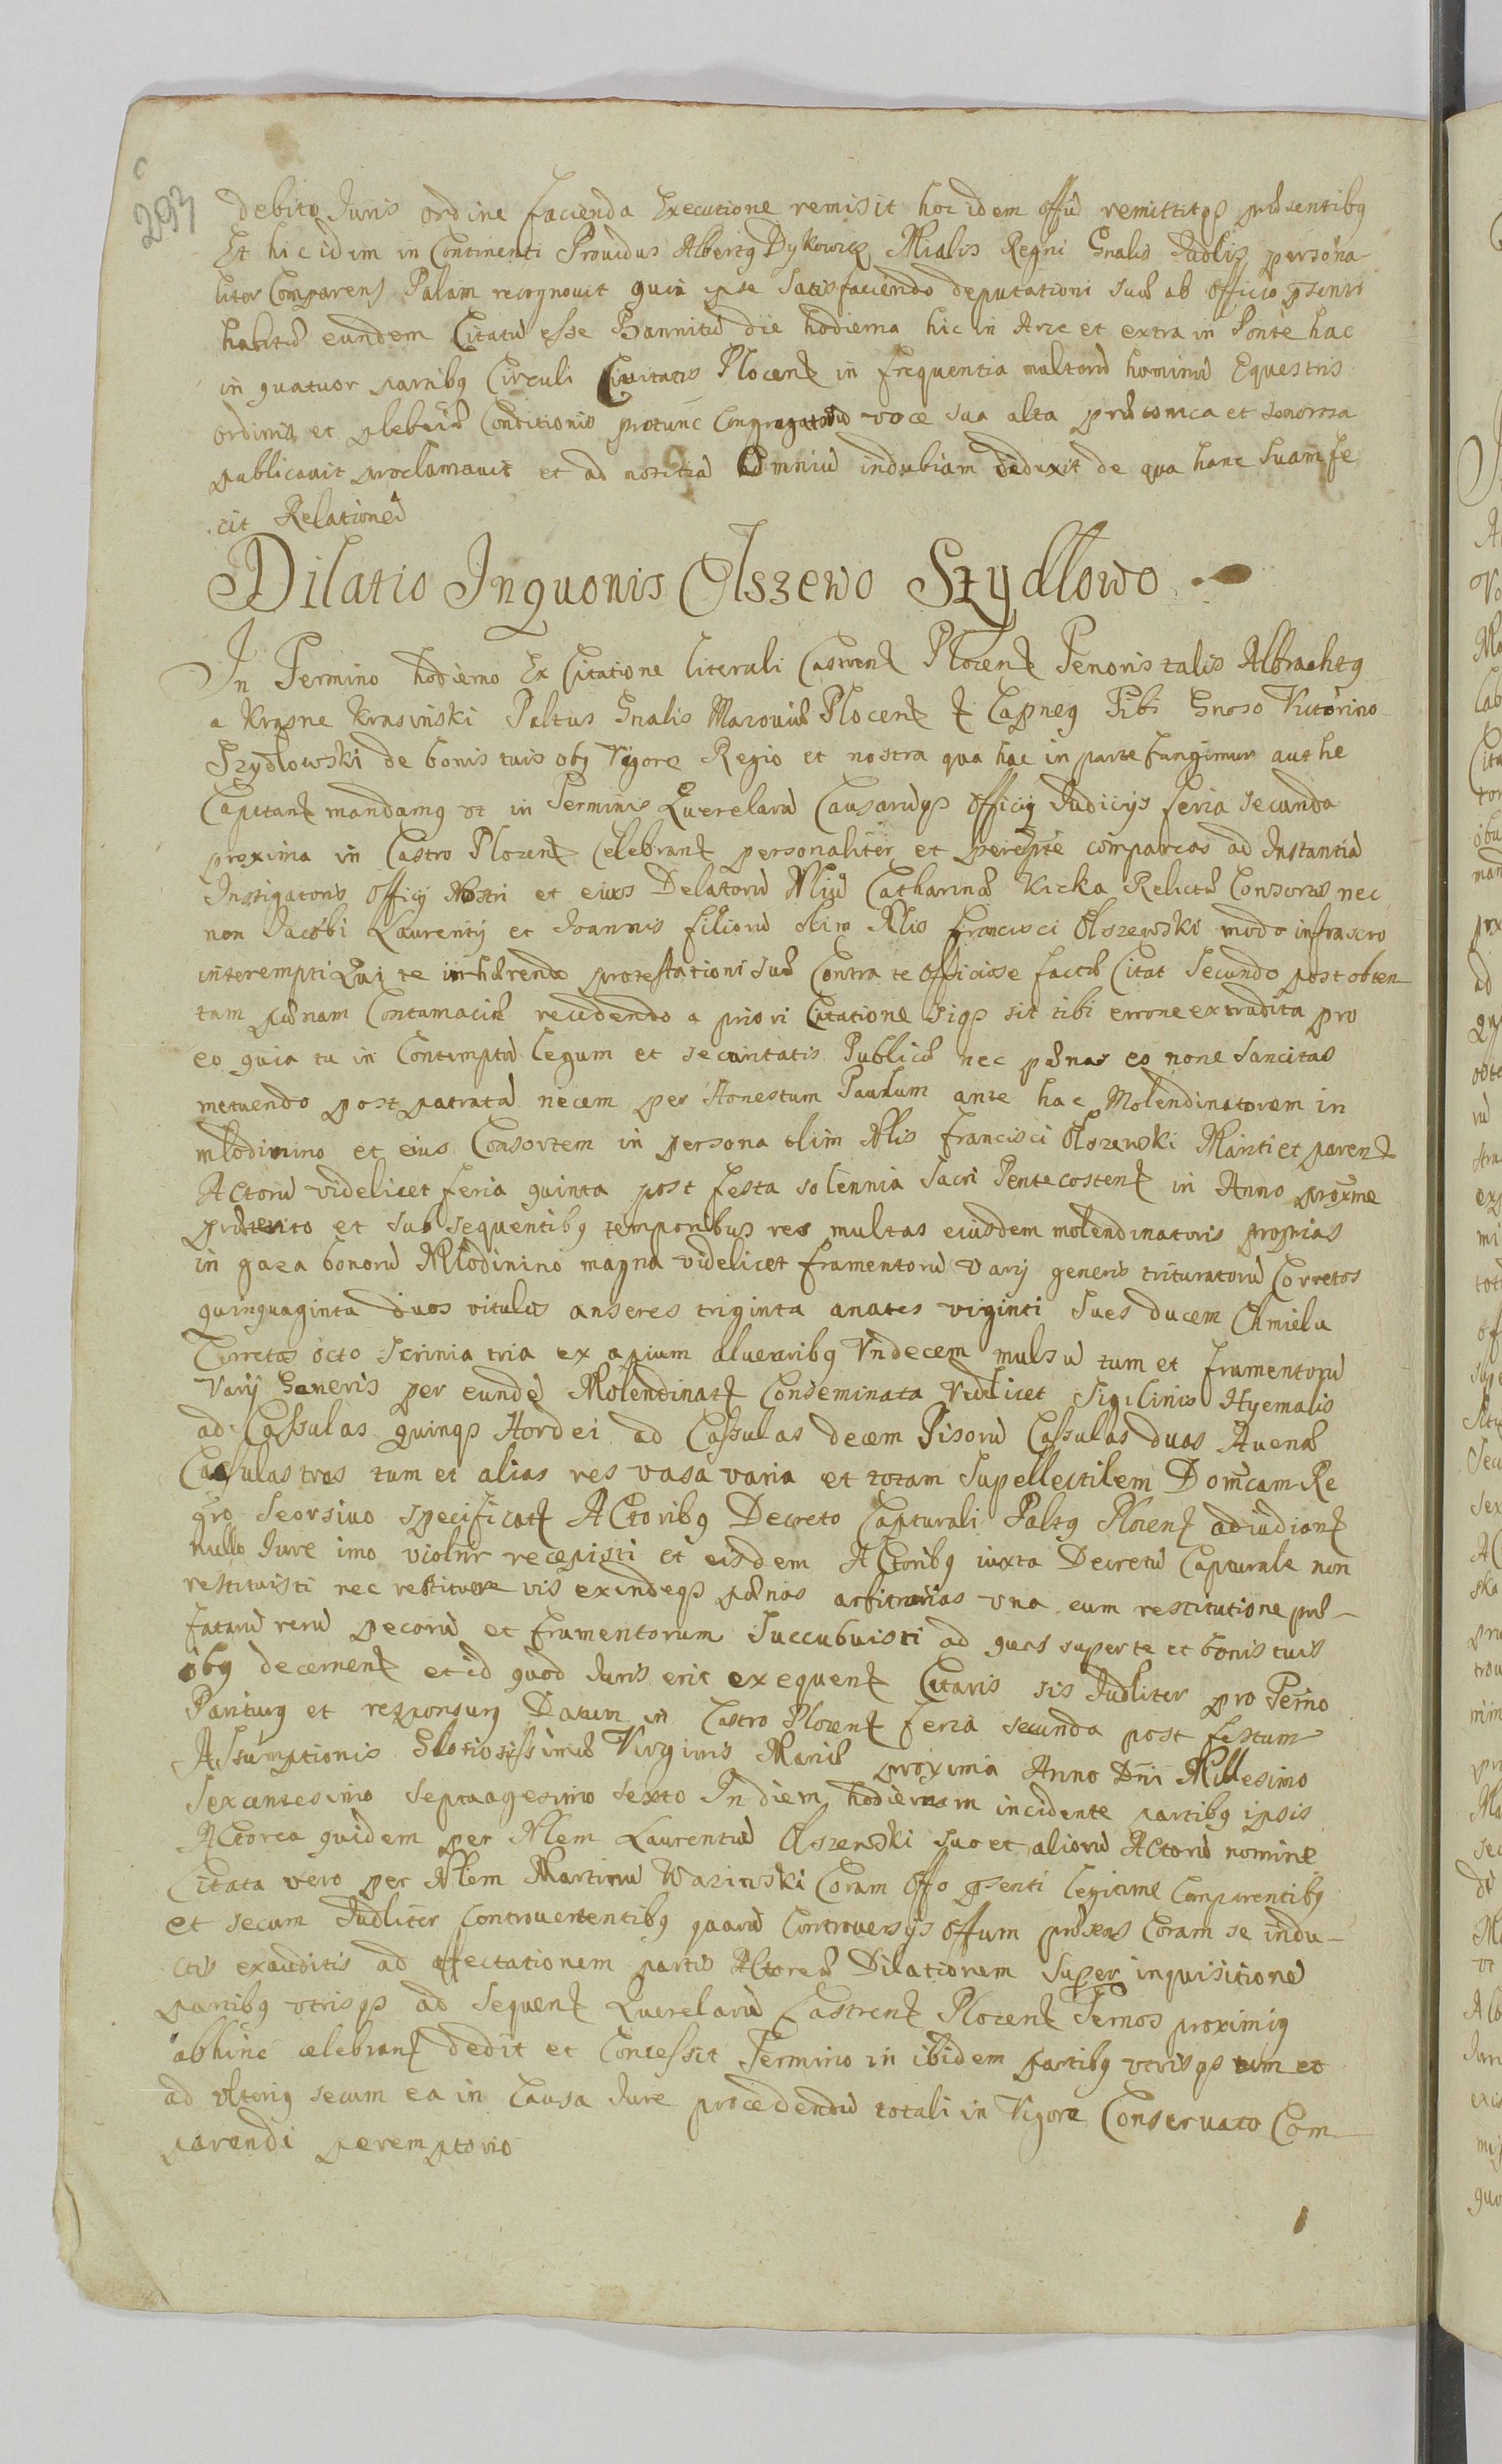 293
debito Juris ordine facienda Executione remisit hoc idem offũ remittitqз præsentibꝯ
Et hic idem in Continenti Prouidus Albertꝯ Dykowicz Mialis Regni Gnalis Judlis persona
liter Comparens Palam recognouit quia ipse Satisfaciendo deputationi suæ ab officio psenti
habitæ eundem Citatũ esse Bannitũ die hodierna hic in Arce et extra in Ponte hac
in quatuor partibꝯ Circuli Ciuitatis Plocen in frequentia multorũ hominũ Equestris
ordinis et plebeiæ Conditionis protunc Congregatorũ voce sua alta præconica et sonorosa
publicauit proclamauit et ad notitiã Omniũ indubiam deduxit de qua hanc suam fe
cit Relationẽ
Dilatio Inquonis Olszewo Szydlowo
In Termino hodierno Ex Citatione literali Castren Plocen Tenoris talis Albrachtꝯ
a Krasne Krasinski Paltus Gnalis Mazouiæ Plocen & Capneꝯ Tibi Gnoso Victorino
Szydlowski de bonis tuis obꝯ Vigore Regio et nostra qua hac in parte fungimur authe
Capitan mandamꝯ vt in Terminis Querelarũ Causarũqз officij Judicijs feria secunda
proxima in Castro Plocen Celebran personaliter et perempte compareas ad Instantiã
Instigatoris officij Nostri et eius Delatorũ Nliũ Catharinæ Kicka Relictæ Consortis nec
non Jacobi Laurentij et Joannis filiorũ olim Nlis Francisci Olszewski modo infrascro
interempti Qui te inhærendo protestationi suæ Contra te officiose factæ Citat Secundo post obten
tam pænam Contumaciæ recedendo a priori Citatione siqз sit tibi errone extradita pro
eo quia tu in Contemptũ legum et securitatis Publicæ nec pænas eo none Sancitas
metuendo post patratã necem per Honestum Paulum ante hac Molendinatorem in
mlodinino et eius Consortem in persona olim Nlis Francisci Olszewski Mariti et paren
Actorũ videlicet feria quinta post festa solennia Sacri Pentecosten in Anno proxme
præterito et subsequentibꝯ temporibus res multas eiusdem molendinatoris proprias
in gaza bonorũ Mlodinino magna videlicet framentorũ varij generis trituratorũ Corretos
quinquaginta duos vitulos anseres triginta anates viginti Sues ducem Chmielu
Corretos octo Scrinia tria ex apium aluearibꝯ Vndecem mulsũ tum et frumentorũ
Varij Generis per eundẽ Molendinat Conseminata Videlicet Sigilinis Hyemalis
ad Cassulas quinqз Hordei ad Cassulas decem Pisorũ Cassulas duas Auenæ
Cassulas tres tum et alias res vasa varia et totam Supellectilem Domcam Re
gro Seorsiuo specificat Actoribꝯ Decreto Capturali Paltꝯ Plocen adiudicat
nullo Jure imo violnr recepisti et eisdem Actoribꝯ iuxta Decretũ Capturale non
restituisti nec restituere vis exindeqз pænas arbitrarias vna cum restitutione præ–
fatarũ rerũ pecorũ et frumentorum Succubuisti ad quas super te et bonis tuis
obꝯ decernen et id quod Juris erit exequen Citaris sis Judliter pro Terno
Pariturꝯ et responsurꝯ Datum in Castro Plocen feria secunda post festum
Assumptionis Gloriosissimæ Virginis Mariæ proxima Anno Dni Millesimo
Sexcentesimo Septuagesimo sexto In diem hodiernam incidente partibꝯ ipsis
Actorea quidem per Nlem Laurentiũ Olszewski suo et aliorũ Actorũ nomine
Citata vero per Nlem Martinũ Wazinski Coram offo psenti legitime Comparentibꝯ
et secum Judliter Controuertentibꝯ quarũ Controuersijs offum præsens Coram se indu–
ctis exauditis ad affectationem partis Actoreæ Dilationem Super inquisitione
partibꝯ vtrisqз ad Sequen Querelarũ Castren Plocen Ternos proximiꝯ
abhinc celebran dedit et Concessit Termino in ibidem partibꝯ vtrisqз tum et
ad vlteriꝯ secum ea in Causa Jure procedendũ totali in Vigore Conseruato Com–
parendi peremptorio